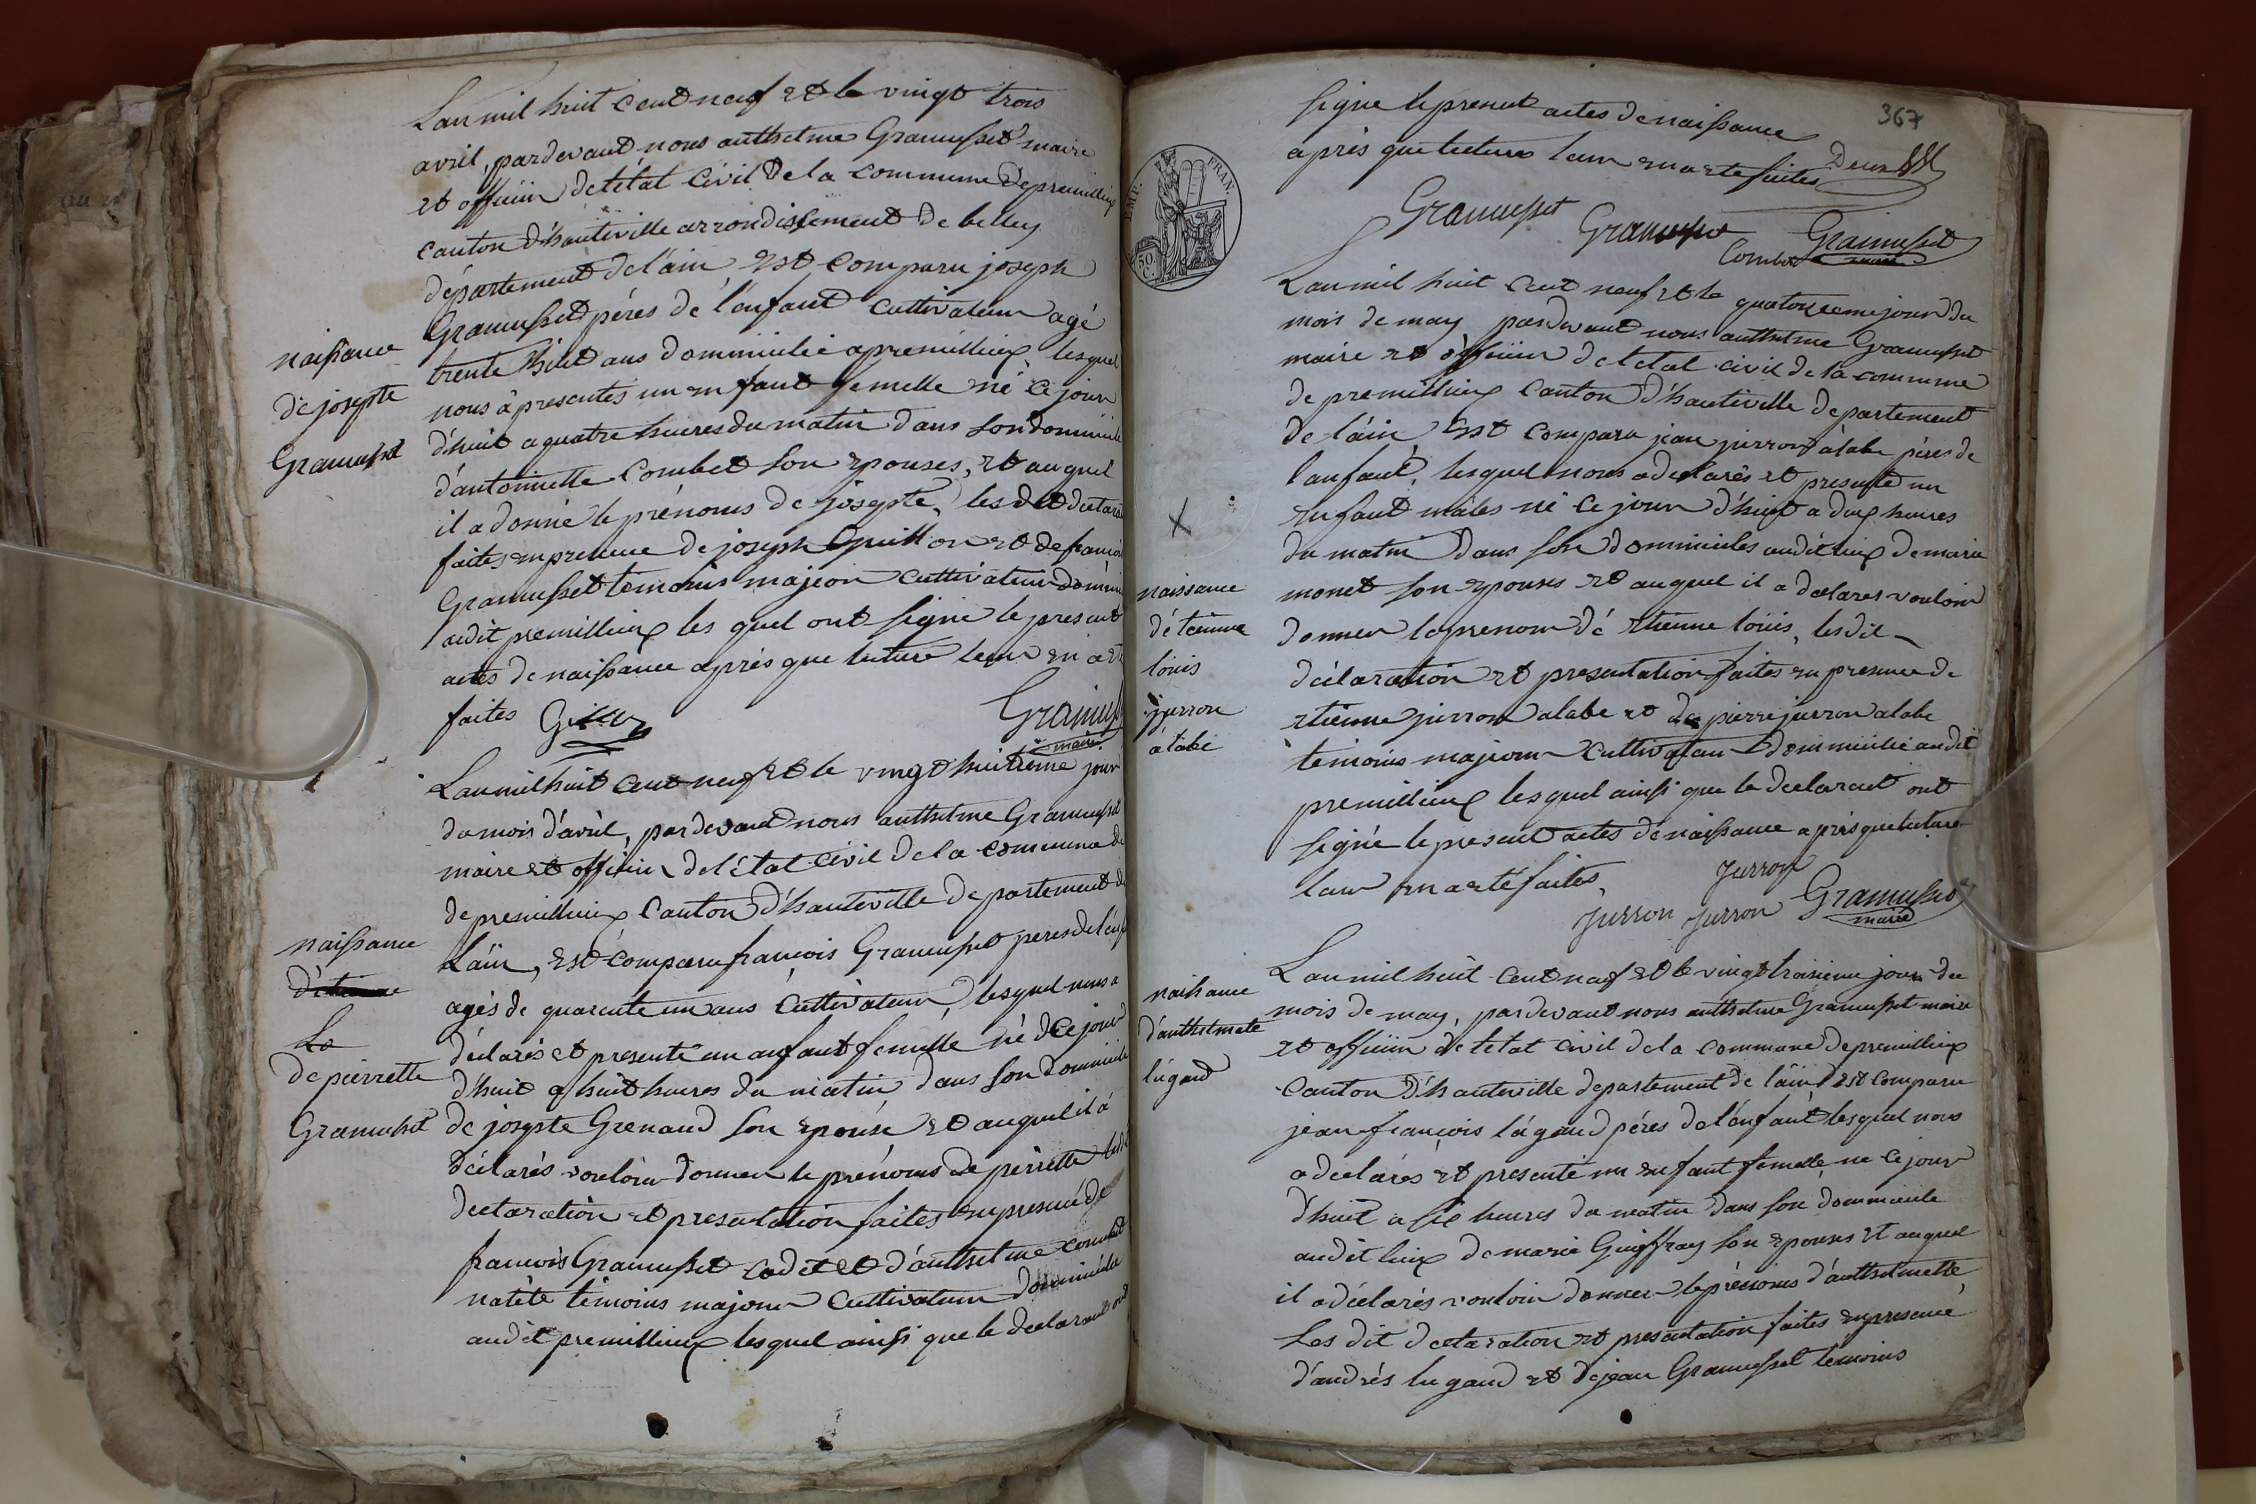 Lan mil huit cent neuf et le vingt trois
avril, pardevant nous anthelme Gramusset maire
et officiin de tétat Civil de la commune de premillieux
canton d'hauteville arrondissement de belley
département de l'ain est comparu joseph
Gramusset péres de l'enfant cultivateur agé
trente huit ans domicilié a premillieux, lesquel
nous à presentés un enfant femelle né ce jour
d'huit a quatre heures du matin dans son domicile
d'antoinette Combet son epouses, et auquel
il a donné le prénoms de josepte, les dit declara
faites en presence de joseph et de francoi
Gramusset temoins majeur cultivateur domici
audit premillieux les quel ont signé le present
actes de naissance après que lecture leur en a et
faites
Gramuss
maire
naissance
de josepte
Gramusset
Lan mil huit cent neuf et le vingt huitième jour
du mois d'avril, pardevant nous anthelme Gramusset
maire et officiin de l'état civil de la commune de
de premillieux Canton d'hauteville departement de
Lain, est comparu francois Gramusset peres de l'enf
agés de quarente un ans Cultivateur, lesquel nous a
déclarés et presenté un anfant femelle né de ce jour
d'huit a huit heures du matin dans son domicile
de josepte Grenaud son epouse et auquel il à
déclarés vouloir donner le prénoms de perrette les d
declaration et presentation faites en presence de
francois Gramusset cadet et d'anthelme combet
natété témoins majeur Cultivateur domiciliée
audit premillieux lesquel ainsi que le declarant ont
naissance
d'étienne
La
de pierrette
Gramusset
367
signé le present actes de naissance
après que lecture leur en a eté faites
Gramusset Gramusset Gramusset
Combet maire
EMP. FRAN.
50 C.
Lan mil huit cent neuf et le quatorzeme jour du
mois de may pardevant nous anthelme Gramusset
maire et officiin de tetat civil de la commune
de premillieux Canton d'hauteville departement
de láin est comparu jean jurron alabe péres de
lanfant, lesquel nous a declarés et presenté un
enfant mâles né ce jour d'huit a deux heures
du matin dans son domiciles audit lieux de marie
monet son epouses et auquel il a declares vouloir
donner le prenom dé etienne loüis, les dit
déclaration et presentation faites en presence de
etienne jurron alabe et de pierre jurron alabe
temoins majeur cultivateur domicilié audit
premillieux lesquel ainsi que le declarant ont
signé le present actes de naissance apres que lecture
leur en a eté faites,
Jurron
Jurron Jurron Gramusset
maire
naissance
d'étienne
loüis
jurron
alabe
Lan mil huit cent neuf et le vingt troisieme jour du
mois de may, pardevant nous anthelme Gramusset maire
et officiin de tetat civil de la commune de premillieux
Canton d'hauteville departement de láin est comparu
jean francois lugand péres de l'énfant lesquel nous
a declarés et presenté un enfant femelle, né ce jour
d'huit a six heures du matin dans son domicile
audit lieux de marie Guiffray son epouses et auquel
il a déclarés vouloir donner le prénoms d'anthelmette,
Les dit declaration et presentation faites en presence
d'andrés lugand et de jean Gramusset temoins
naissance
d'anthelmete
lugand